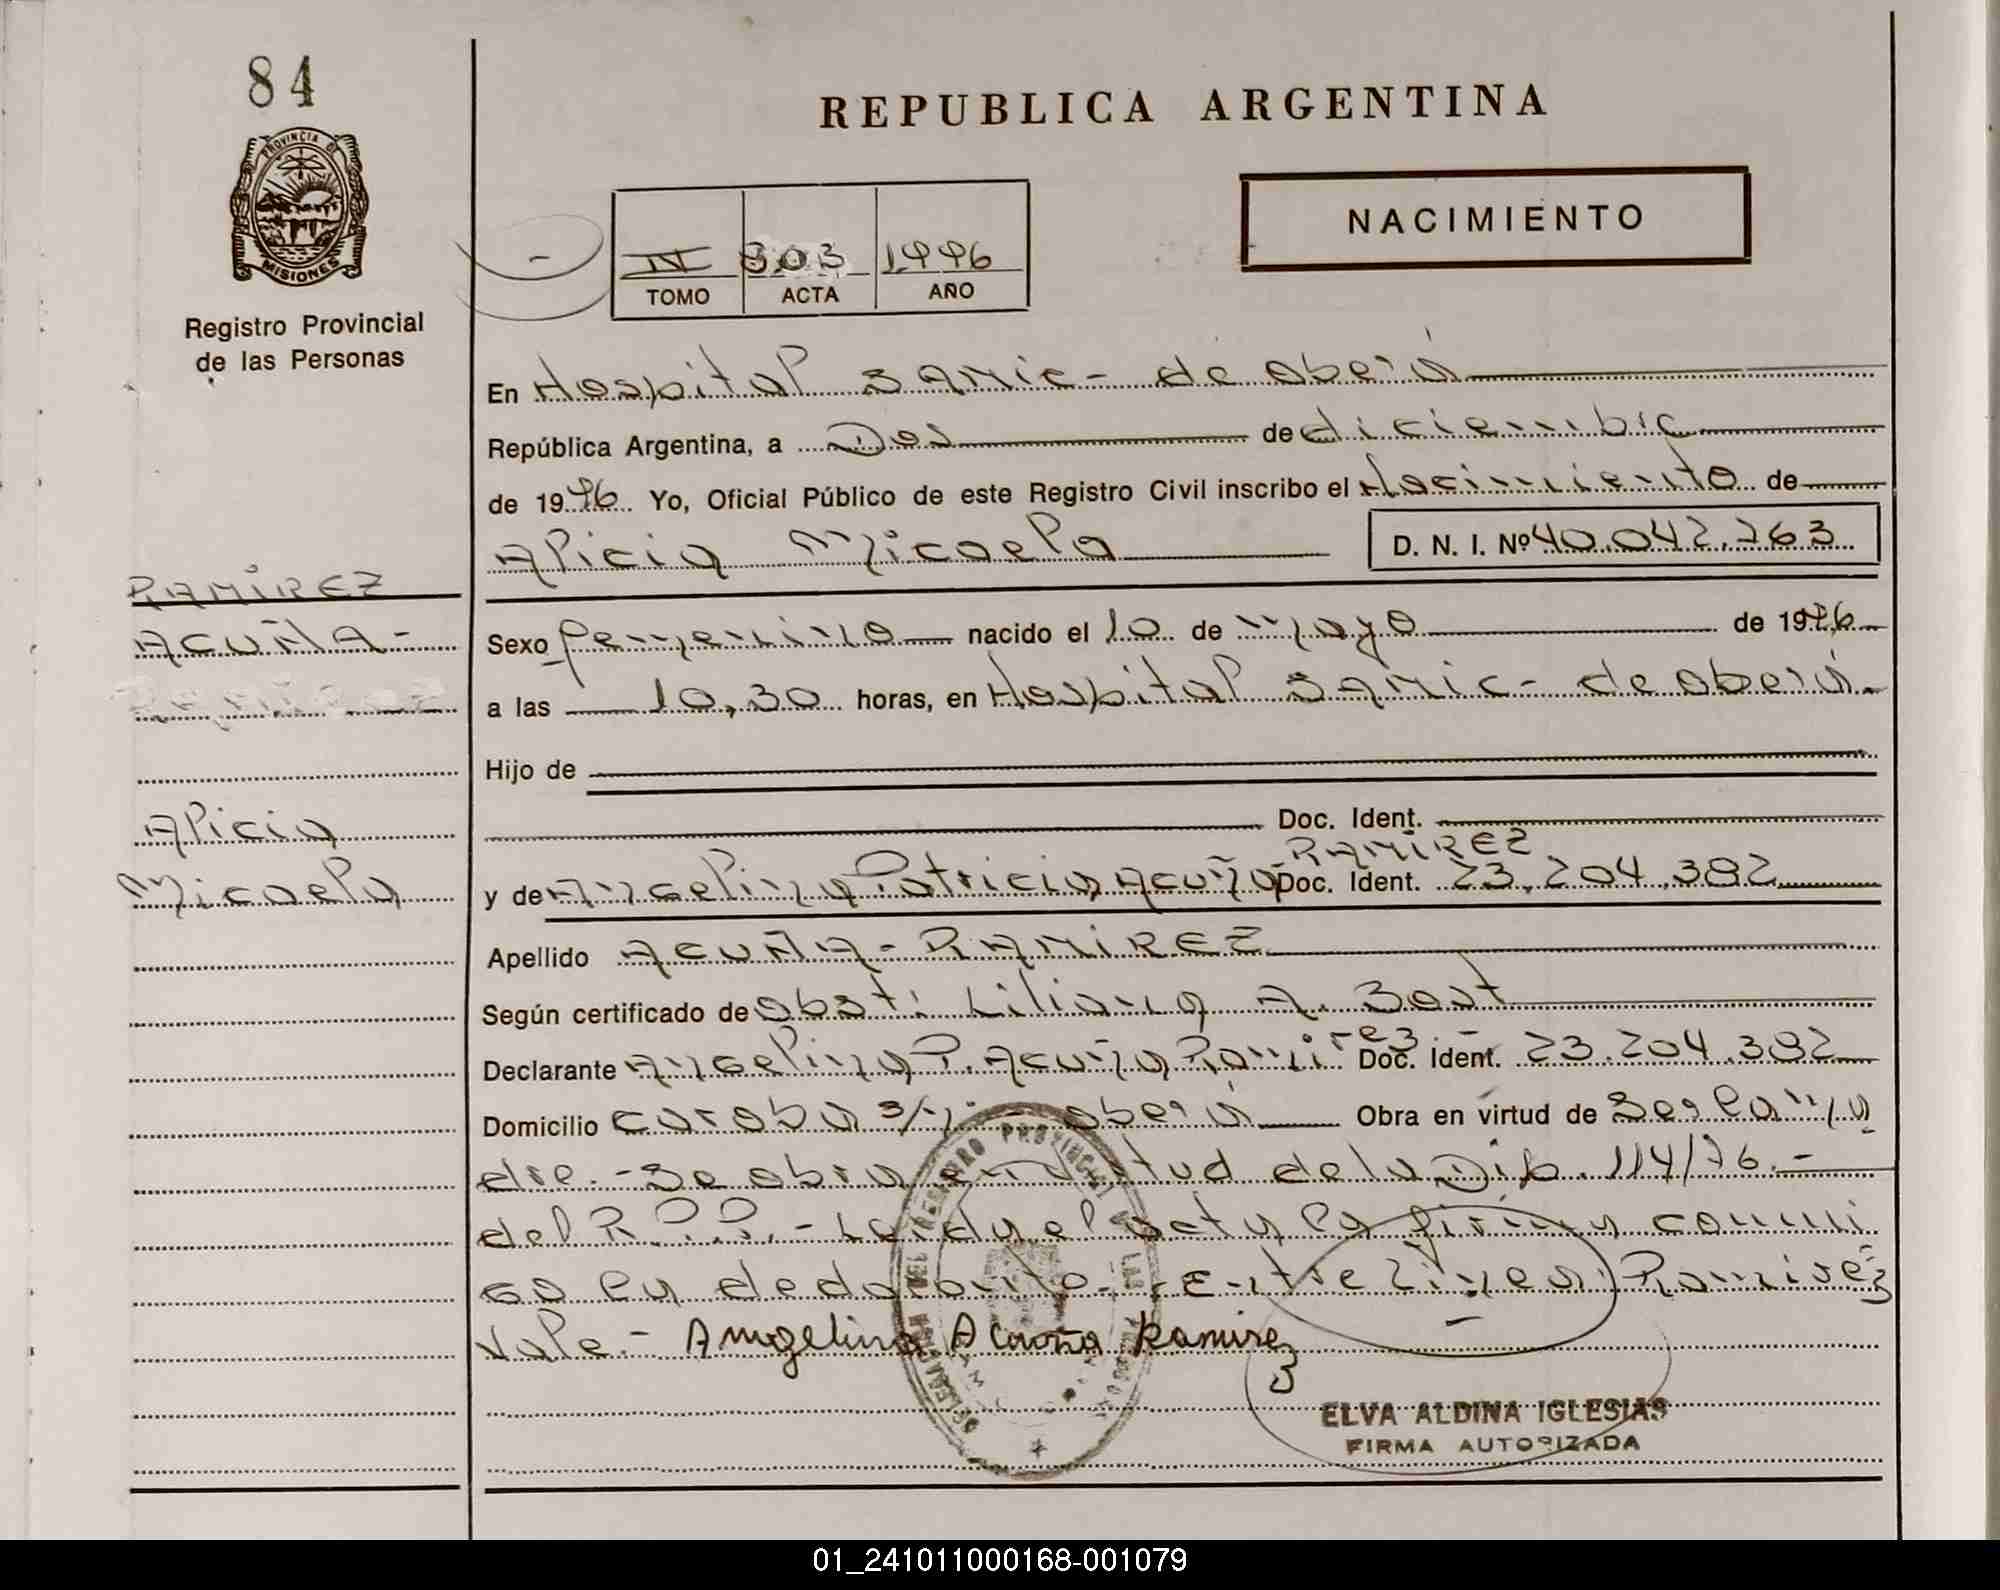 84
REPUBLICA ARGENTINA
PROVINCIA DE
MISIONES
Registro Provincial
de las Personas
NACIMIENTO
IV 803 1996
TOMO ACTA AÑO
En Hospital SAMIC - de oberá
República Argentina, a Dos de diciembre
de 1996 Yo, Oficial Público de este Registro Civil inscribo el Nacimiento de
Alicia Micaela D. N. I. Nº 40.042.763
RAMIREZ
ACUÑA -
Sexo femenino nacido el 10 de mayo de 1996
a las 10,30 horas, en Hospital SAMIC - de oberá.
Hijo de
Doc. Ident.
Alicia
Micaela
RAMIREZ
y de Angelina Patricia Acuña Doc. Ident. 23.204.382
Apellido ACUÑA - RAMIREZ
Según certificado de obst: Liliana A. Bast
Declarante Angelina P. Acuña Ramirez - Doc. Ident. 23.204.382
Domicilio caraba s/n: - oberá Obra en virtud de Ser la ma
dre. - Se obra en virtud de la Disp. 114/96. -
del R.P.P. - Leida el acta la firma conmi
go la declarante. - Entre lineas: Ramirez
Vale. - Angelina Acuña Ramirez
DELEGACION DEL REGISTRO PROVINCIAL DE LAS PERSONAS
ELVA ALDINA IGLESIAS
FIRMA AUTORIZADA
01_241011000168-001079